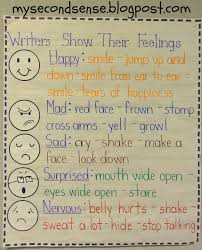 mysecondsense.blogspot.com
Writers Show Their Feelings
Happy- smile - jump up and
down - smile from ear to ear -
smile - tears of happiness
Mad: red face - frown - stomp
cross arms - yell - growl
Sad: cry - shake - make a
face - look down
Surprised: mouth wide open -
eyes wide open - stare
Nervous: belly hurts - shake
sweat a lot - hide - stop talking